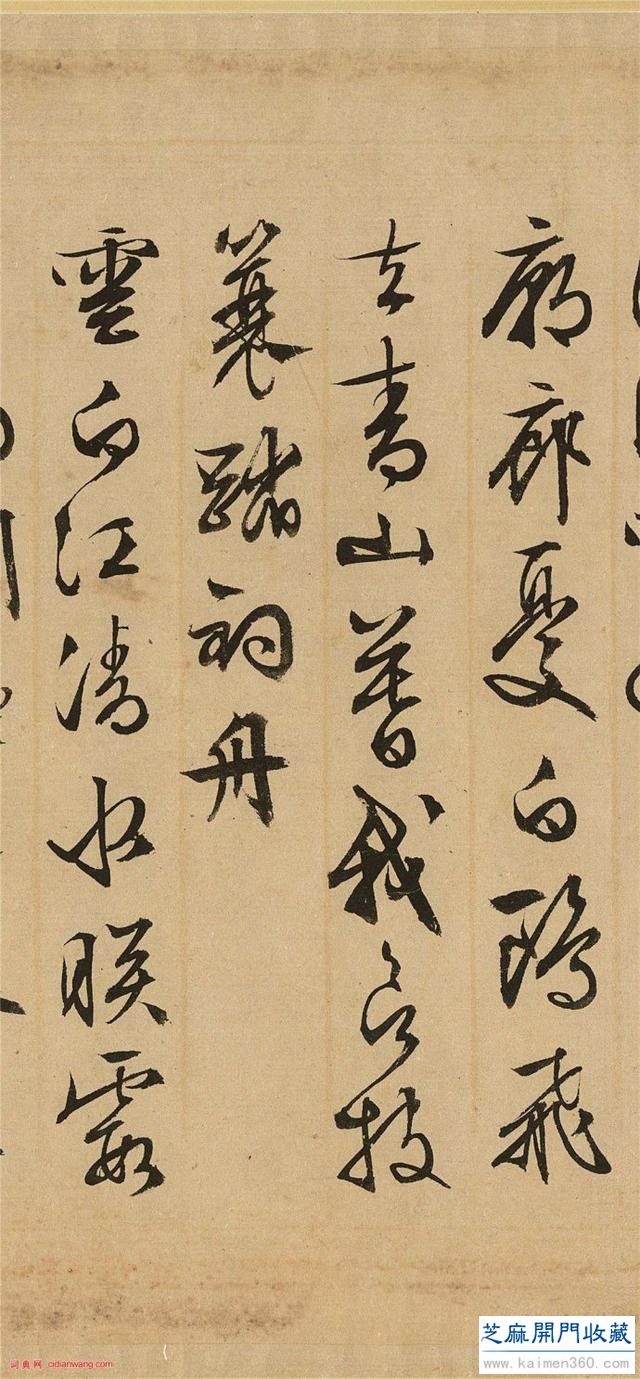 廟廊憂白鷗飛
去青山暮我欲披
蓑踏釣舟
雲白江清水映霞
芝麻開門收藏
www.kaimen360.com
词典网 cidianwang.com